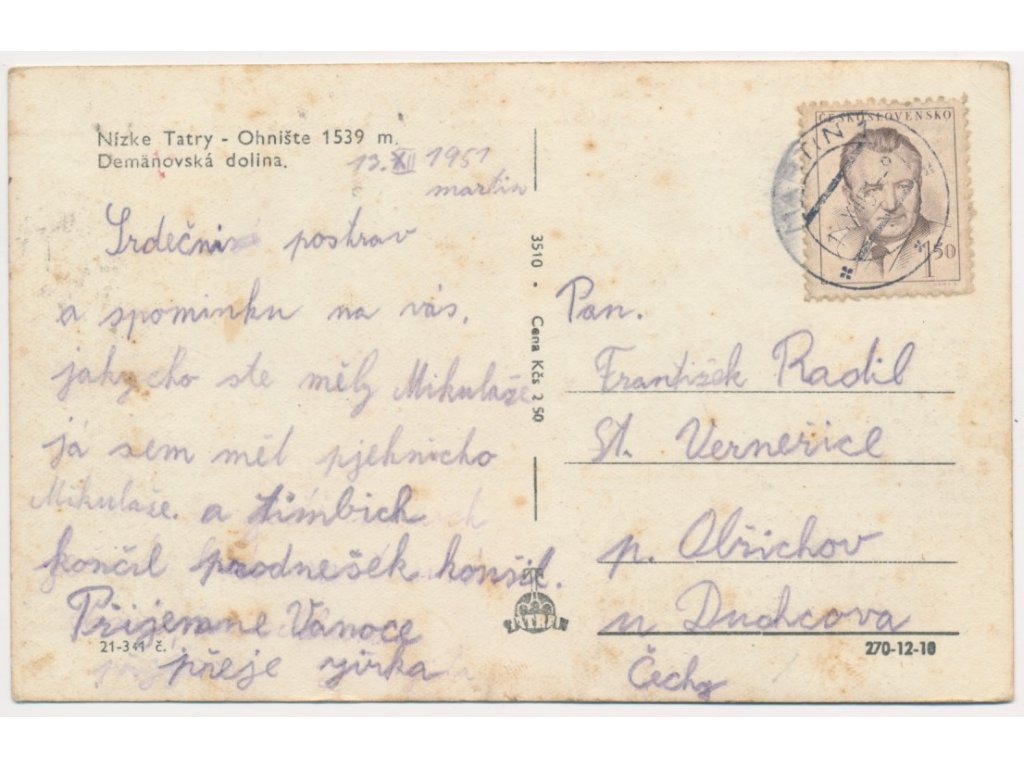 Nízke Tatry - Ohnište 1539 m.
Demänovská dolina.
13. XII 1951
martin
Srdečni postrav
a spominku na vás,
jakycho ste měly Mikuláše
já sem měl pjeknicho
Mikuláše. a timbich
končil prodnešek končil.
Přijemne Vánoce
přeje yirka
21-341 č.
3510 • Cena Kčs 2·50
TATRA
ČESKOSLOVENSKO
1,50
MARTIN 1
Pan.
František Radil
St. Verneřice
p. Obřichov
u Duchcova
270-12-10
Čechy